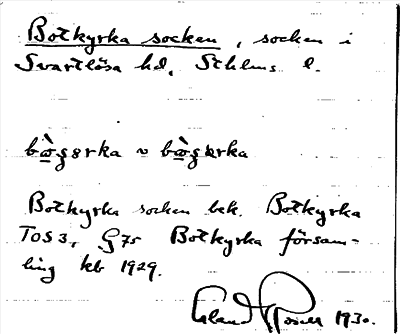 Botkyrka socken, socken i
Svartlösa hd, Sthlms l.
Botkyrka socken bek. Botkyrka
TOS 3, G 75 Botkyrka försam-
ling kb 1929.
Erland Rosell 1930.